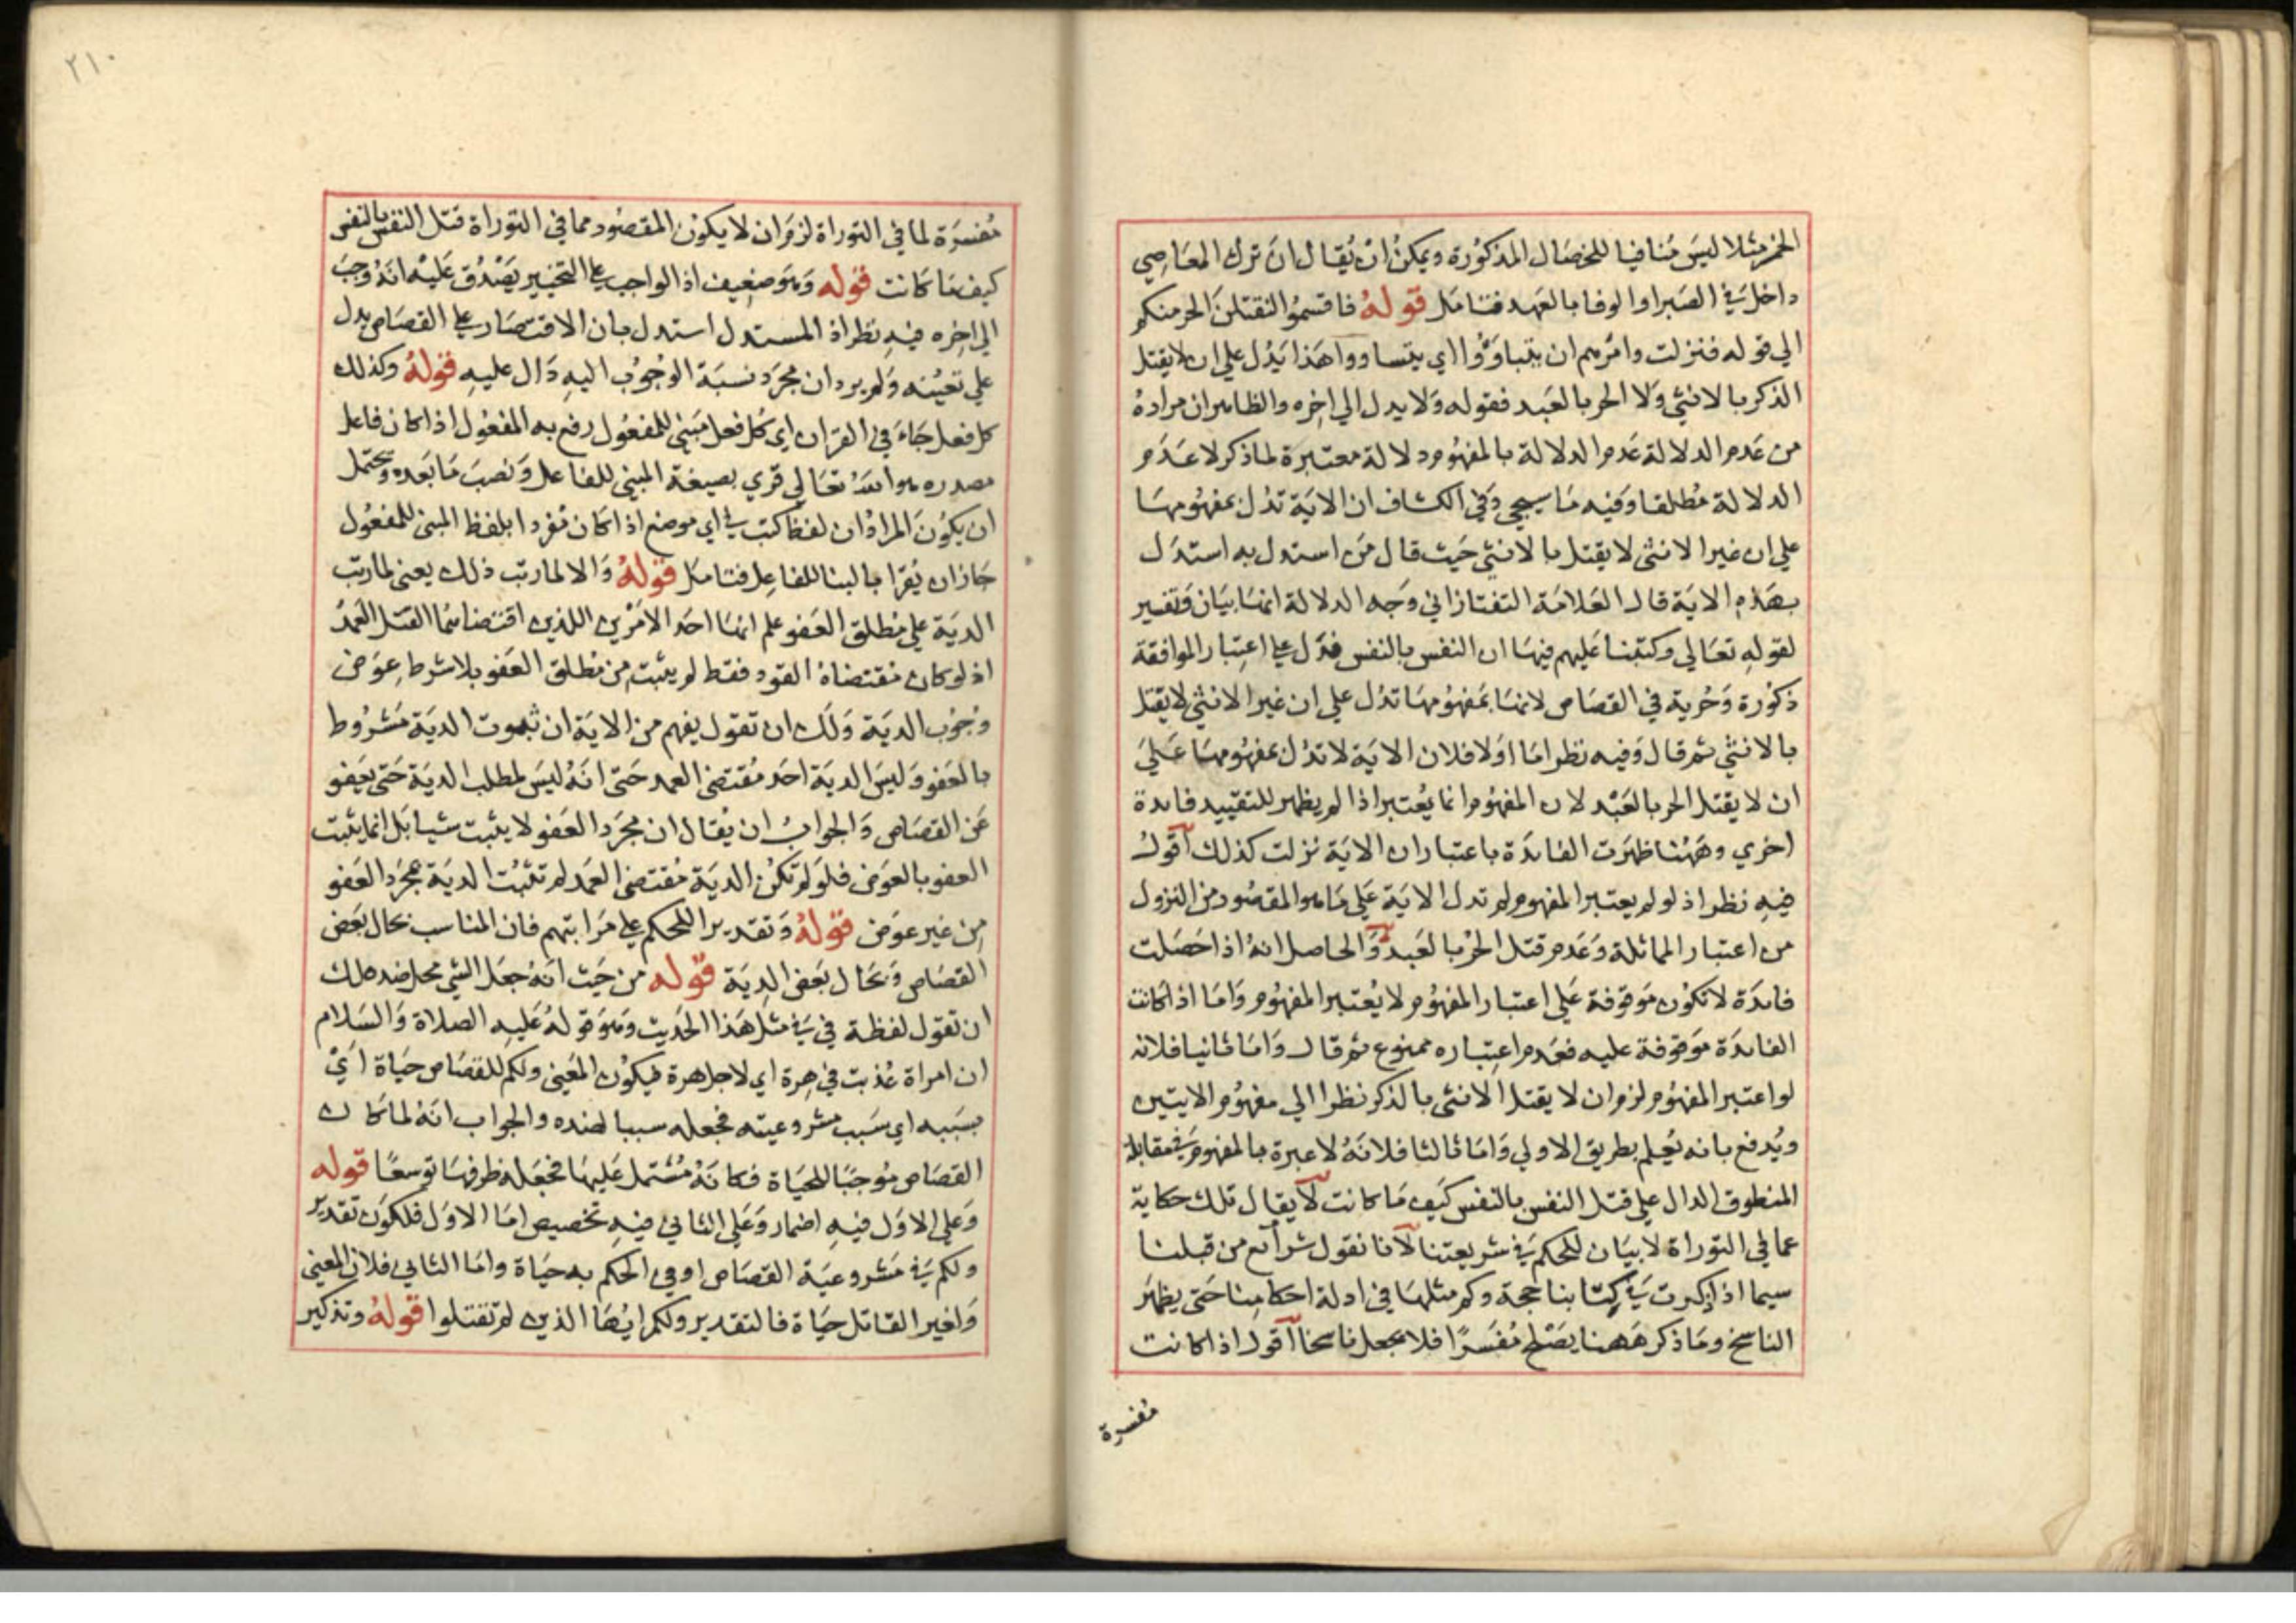 الخمر مثلا ليس منافيا للخصال المذكورة ويمكن ان يقال ان ترك المعاصي
داخل في الصبر او الوفا بالعهد فتامل قوله فاقسموا لنقتلن الحر منكم
الي قوله فنزلت وامرهم ان يتباوؤا اي يتساووا هذا يدل علي ان لا يقتل
الذكر بالانثي ولا الحر بالعبد فقوله ولا يدل الي اخره والظاهر ان مراده
من عدم الدلالة عدم الدلالة بالمفهوم دلالة معتبرة لما ذكر لا عدم
الدلالة مطلقا وفيه ما سيجي وفي الكشاف ان الاية تدل بمفهومها
علي ان غير الانثي لا يقتل بالانثي حيث قال من استدل به استدل
بهذه الاية قال العلامة التفتازاني وجه الدلالة انها بيان وتفسير
لقوله تعالي وكتبنا عليهم فيها ان النفس بالنفس فدل علي اعتبار الموافقة
ذكورة وحرية في القصاص لانها بمفهومها تدل علي ان غير الانثي لا يقتل
بالانثي ثم قال وفيه نظر اما اولا فلان الاية لا تدل بمفهومها علي
ان لا يقتل الحر بالعبد لان المفهوم انما يعتبر اذا لم يظهر للتقييد فايدة
اخري وههنا ظهرت الفايدة باعتبار ان الاية نزلت كذلك اقول
فيه نظر اذ لو لم يعتبر المفهوم لم تدل الاية علي ما هو المقصود من النزول
من اعتبار المماثلة وعدم قتل الحر بالعبد والحاصل انه اذا حصلت
فايدة لا تكون موقوفة علي اعتبار المفهوم لا يعتبر المفهوم واما اذا كانت
الفايدة موقوفة عليه فعدم اعتباره ممنوع ثم قال واما ثانيا فلانه
لو اعتبر المفهوم لزم ان لا يقتل الانثي بالذكر نظرا الي مفهوم الايتين
ويدفع بانه يعلم بطريق الاولي واما ثالثا فلانه لا عبرة بالمفهوم في مقابلة
المنطوق الدال علي قتل النفس بالنفس كيف ما كانت لا يقال تلك حكاية
عما في التوراة لا بيان للحكم في شريعتنا لانا نقول شرائع من قبلنا
سيما اذا ذكرت في كتابنا حجة وكم مثلها في ادلة احكامنا حتي يظهر
الناسخ وما ذكر ههنا يصلح مفسرا فلا يجعل ناسخا اقول اذا كانت
مفسرة
٢١٠
مفسرة لما في التوراة لزم ان لا يكون المقصود مما في التوراة قتل النفس بالنفس
كيف ما كانت قوله وهو ضعيف اذ الواجب علي التخيير يصدق عليه انه وجب
الي اخره فيه نظر اذ المستدل استدل بان الاقتصار علي القصاص يدل
علي تعينه ولم يرد ان مجرد نسبة الوجوب اليه دال عليه قوله وكذلك
كل فعل جاء في القران اي كل فعل مبني للمفعول رفع به المفعول اذا كان فاعل
مصدره هو الله تعالي قري بصيغة المبني للفاعل ونصب ما بعده ويحتمل
ان يكون المراد ان لفظ كتب في اي موضع اذا كان مقروا بلفظ المبني للمفعول
جاز ان يقرا بالبنا للفاعل فتامل قوله والا لما رتب ذلك يعني لما رتب
الدية علي مطلق العفو علم انها احد الامرين اللذين اقتضاهما القتل العمد
اذ لو كان مقتضاه القود فقط لم يثبت من مطلق العفو بلا شرط عوض
وجوب الدية ولك ان تقول يفهم من الاية ان ثبوت الدية مشروط
بالعفو وليس الدية احد مقتضي العمد حتي انه ليس له طلب الدية حتي يعفو
عن القصاص والجواب ان يقال ان مجرد العفو لا يثبت شيا بل انما يثبت
العفو بالعوض فلو لم تكن الدية مقتضي العمد لم تثبت الدية بمجرد العفو
من غير عوض قوله وتقديرا للحكم علي مراتبهم فان المناسب بحال بعض
القصاص وبحال بعض الدية قوله من حيث انه جعل الشي محل ضده ملك
ان تقول لفظة في في مثل هذا الحديث وهو قوله عليه الصلاة والسلام
ان امراة عذبت في هرة اي لاجل هرة فيكون المعني ولكم للقصاص حياة اي
بسببه اي سبب مشروعيته فجعله سببا لضده والجواب انه لما كان
القصاص موجبا للحياة فكانه مشتمل عليها فجعله ظرفها توسعا قوله
وعلي الاول فيه اضمار وعلي الثاني فيه تخصيص اما الاول فلكون تقديره
ولكم في مشروعية القصاص او في الحكم به حياة واما الثاني فلان المعني
ولغير القاتل حياة فالتقدير ولكم ايها الذين لم تقتلوا قوله وتذكير